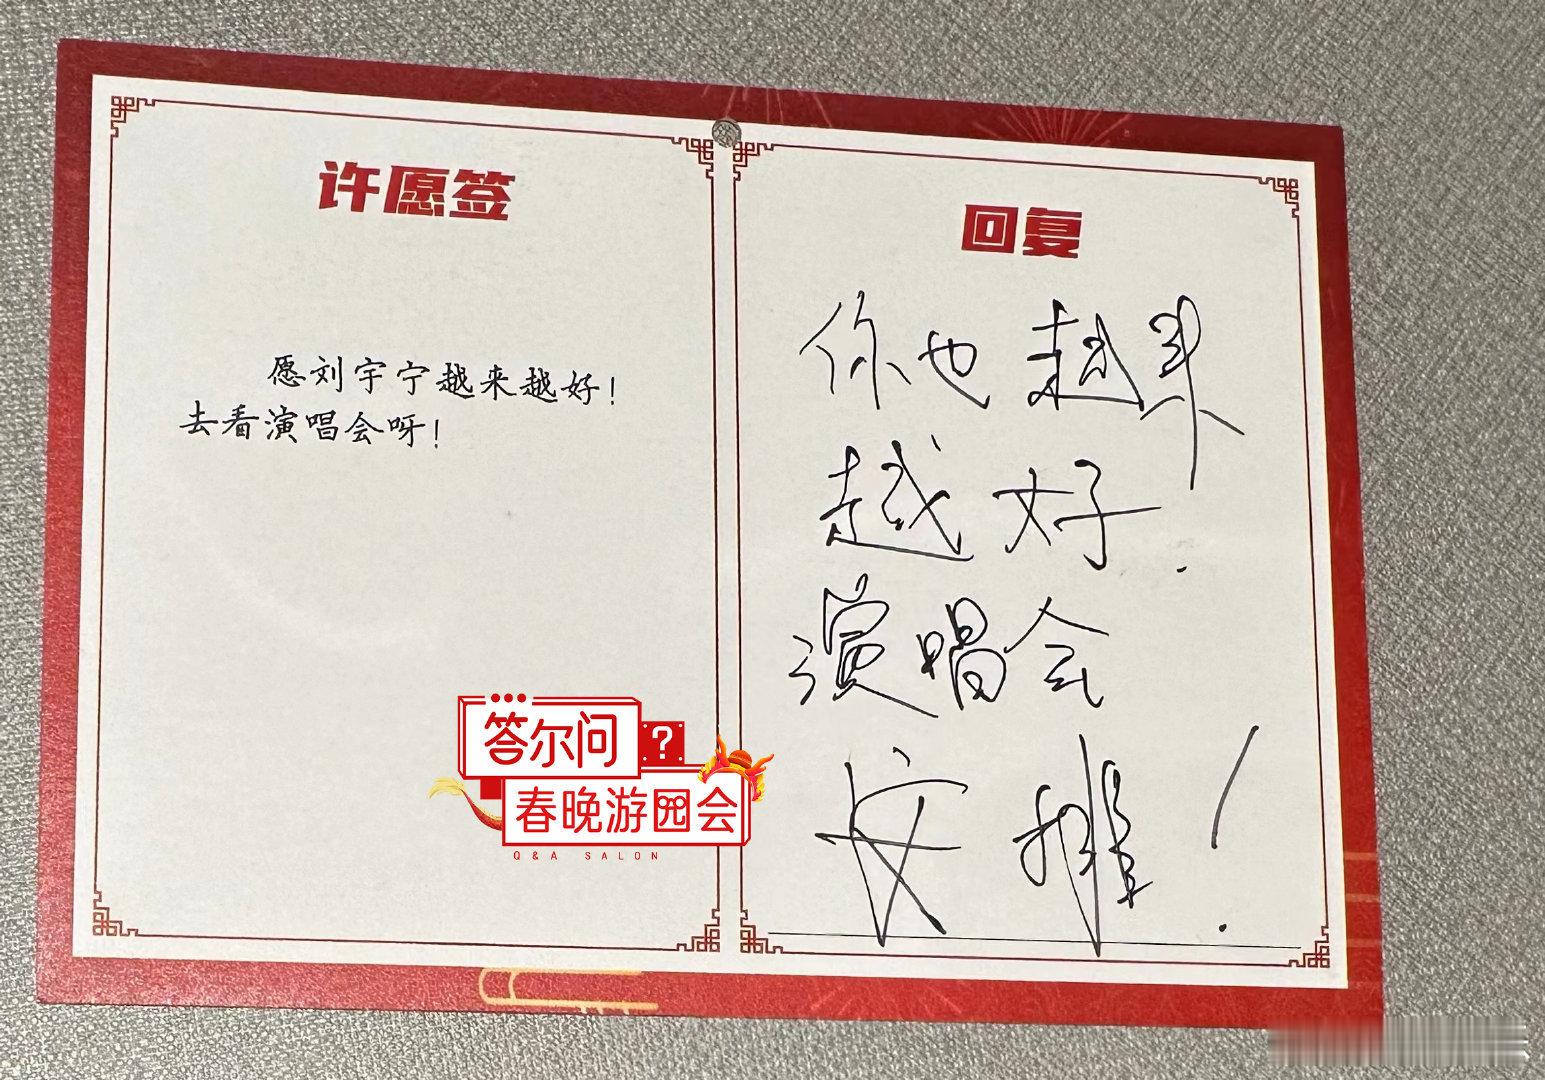 许愿签
愿刘宇宁越来越好!
去看演唱会呀!
回复
你也越来
越好.
演唱会
安排!
答尔问?
春晚游园会
Q&A SALON